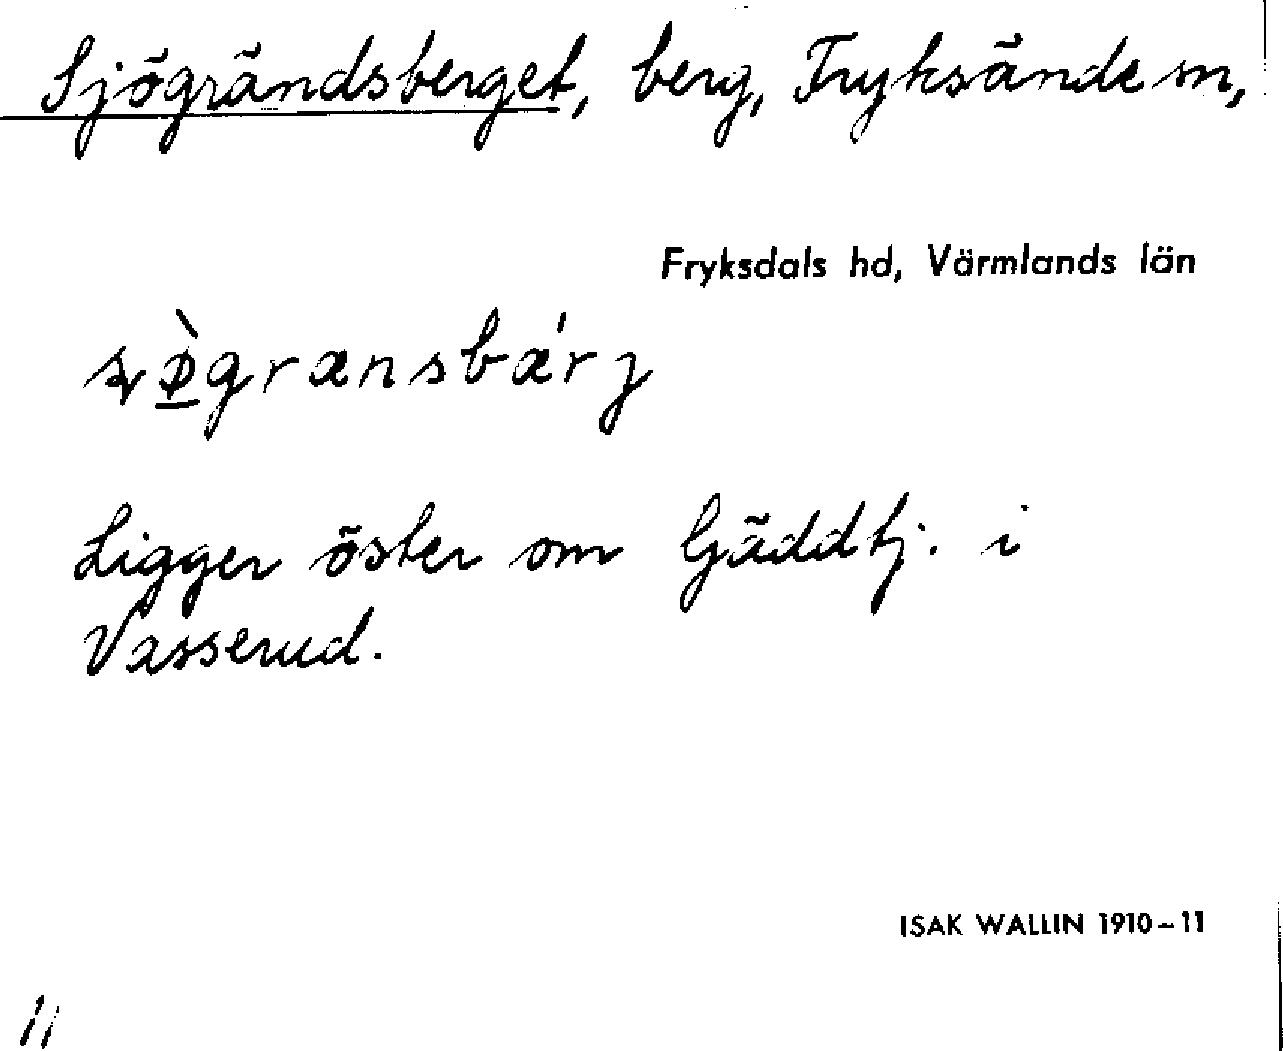 Sjögrändsberget, berg, Fryksände sn,
Fryksdals hd, Värmlands län
Ligger öster om Gäddtj. i
Vasserud.
ISAK WALLIN 1910–11
11